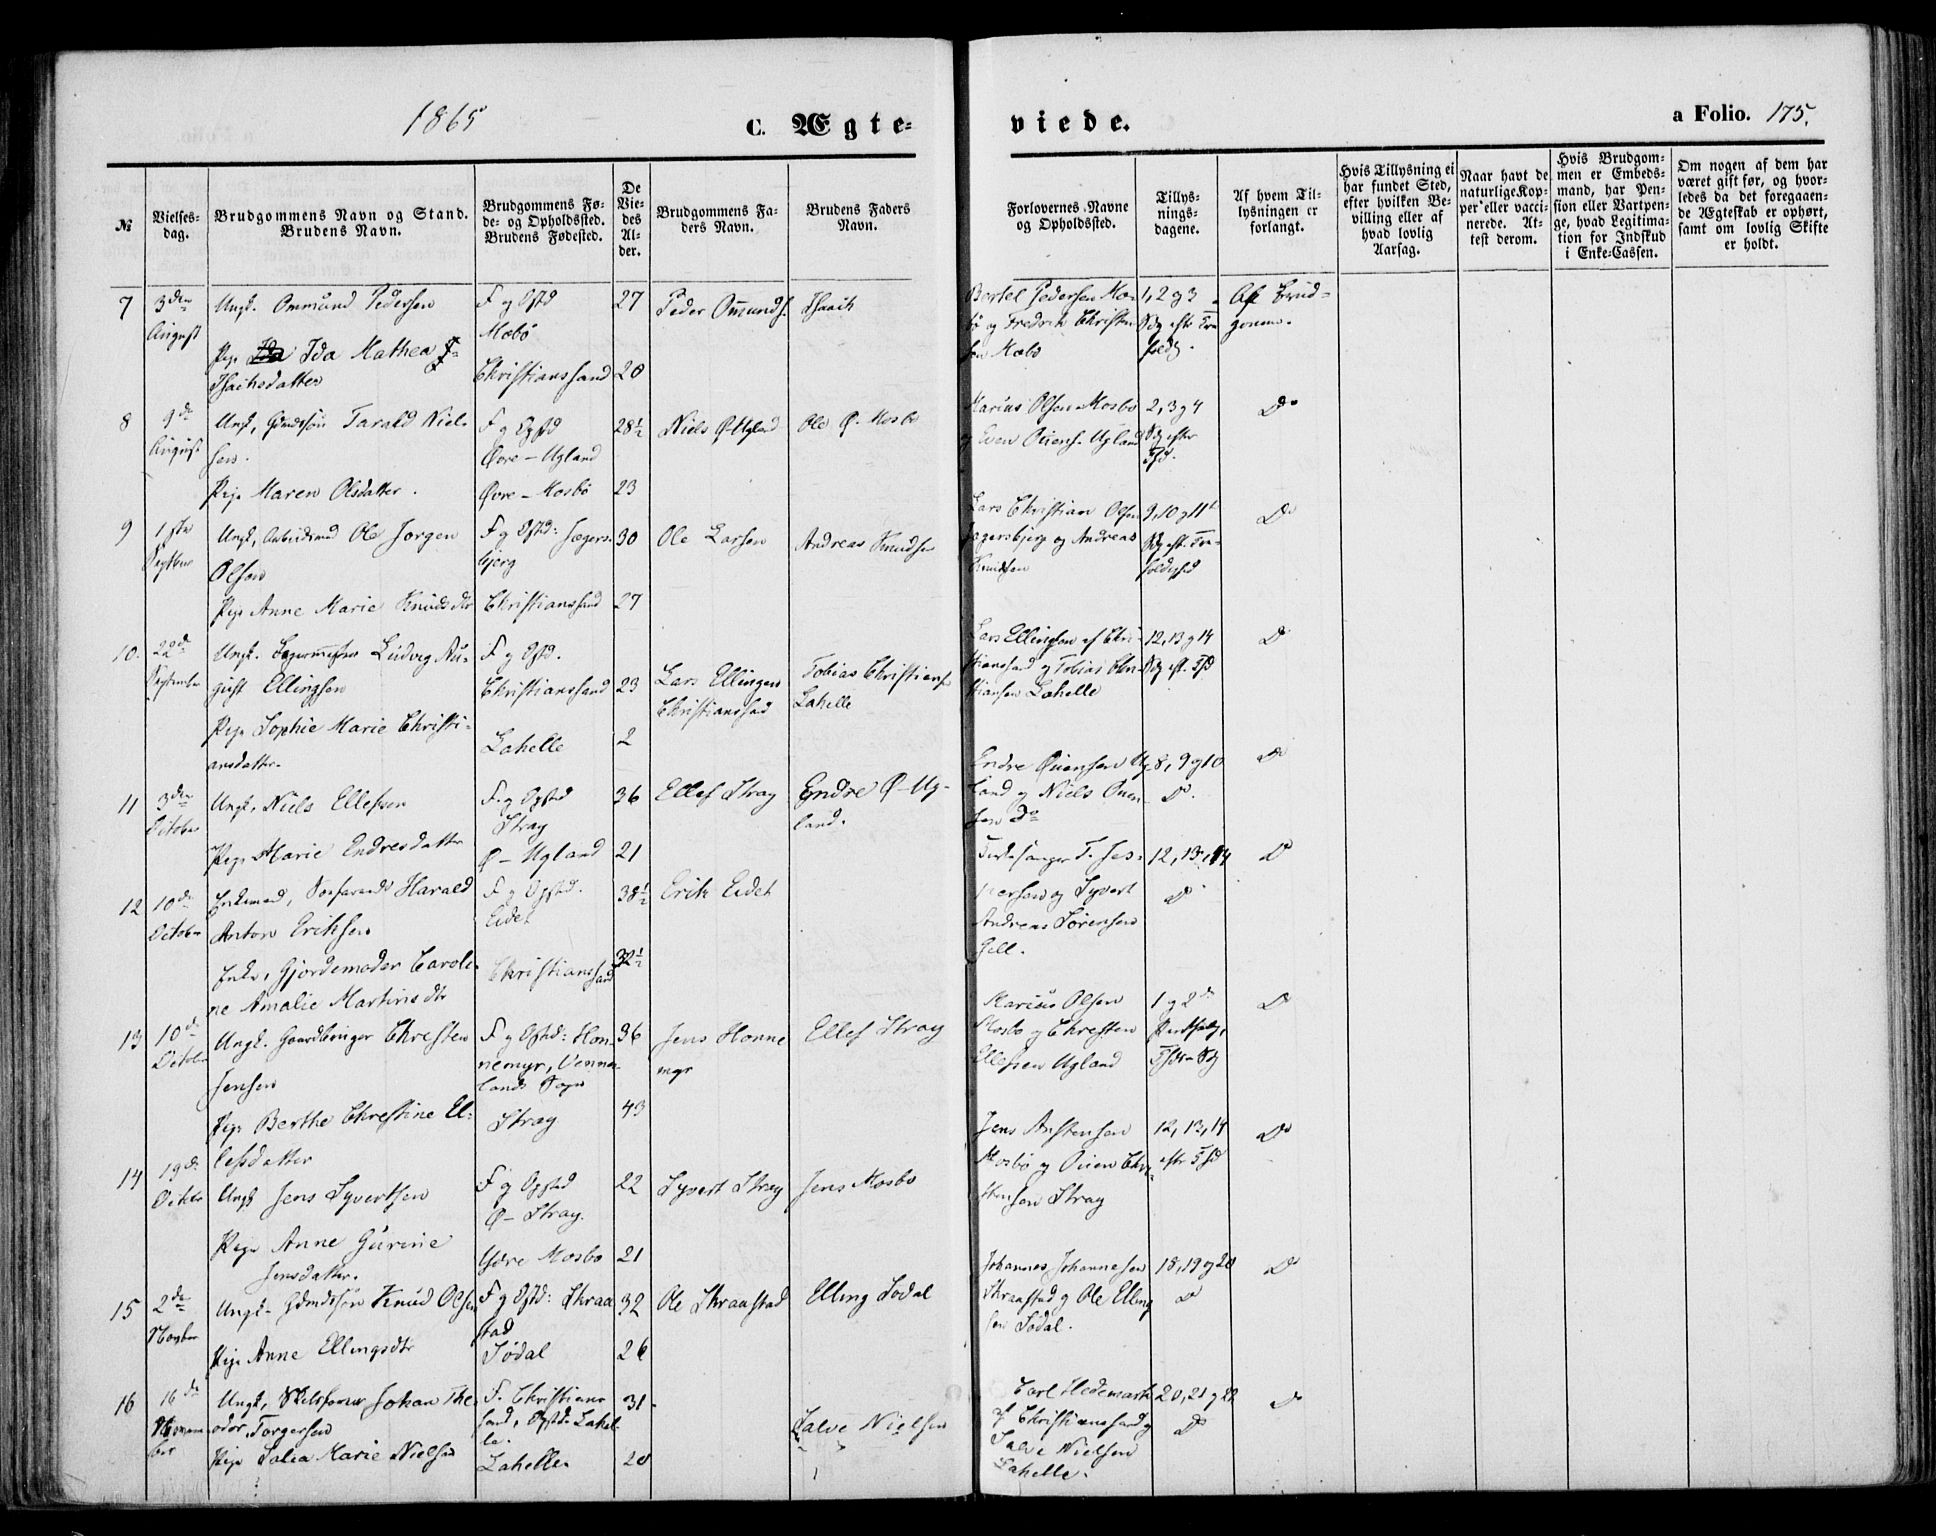 1865
C. Ægte-
viede.
a Folio. 175.
№
Vielses-
dag.
Brudgommens Navn og Stand.
Brudens Navn.
Brudgommens Fø-
de- og Opholdssted.
Brudens Fødested.
De
Vie-
des
Al-
der.
Brudgommens Fa-
ders Navn.
Brudens Faders
Navn.
Forlovernes Navne
og Opholdssted.
Tillys-
nings-
dagene.
Af hvem Til-
lysningen er
forlangt.
Hvis Tillysning ei
har fundet Sted,
efter hvilken Be-
villing eller af
hvad lovlig
Aarsag.
Naar havt de
naturlige Kop-
per eller vacci-
nerede. At-
test derom.
Hvis Brudgom-
men er Embeds-
mand, har Pen-
sion eller Vartpen-
ge, hvad Legitima-
tion for Indskud
i Enke-Cassen.
Om nogen af dem har
været gift før, og hvor-
ledes da det foregaaen-
de Ægteskab er ophørt,
samt om lovlig Skifte
er holdt.
7
3den
August
Ungk. Ommund Pedersen
Pige Ida Mathea
Isachsdatter
F og Opstd
Mæbø
Christianssand
27
20
Peder Omunds.
Isaich
Bertel Pedersen Mæ-
bø og Fredrik Christen
sen Mæbø
1, 2 og 3
Af Brud-
gomen.
8
9de
August
Ungk, Gmdssøn Tarald Niel-
sen.
Pige Maren Olsdatter.
F og Opstd
Øvre-Ugland
Øvre-Mosbø
28½
23
Niels Ø-Ugland
Ole Ø. Mosbø
Marius Olsen Mosbø
og Even Øiens. Ugland
2, 3 og 4
Do
9
1ste
Septbr
Ungk, Arbeidsmd Ole Jørgen
Olsen
Pige Anne Marie Knudsdtr
F og Opstd: Jægers-
bjerg
Christianssand
30
27
Ole Larsen
Andreas Knudsen
Lars Christian Olsen
Jægersbjerg og Andreas
Knudsen
9, 10 og 11te
Do
10.
22de
September
Ungk. Ludvig Au-
gust Ellingsen
Pige Sophie Marie Christi-
ansdatter.
F og Opstd.
Christianssand
Lahelle
23
2
Lars Ellingsen
Christianssand
Tobias Christians.
Lahelle
Lars Ellingsen af Chri-
stianssand og Tobias Chri-
stiansen Lahelle
12, 13 og 14
Do
11
3den
October
Ungk. Niels Ellefsen
Pige Marie Endresdatter
F. og Opstd
Stray
Ø-Ugland
36
21
Ellef Stray
Endre Ø-Ug-
land.
Endre Øuensen Ug-
land og Niels Ouen-
sen Do
8, 9 og 10
Do.
Do
12
10de
October
Enkemd, Søfarende Harald
Anton Eriksen
Enke, Gjordemoder Caroli-
ne Amalie Martinsdtr
F. og Opstd.
Eidet
Christianssand
38½
32½
Erik Eidet
Kirkesanger T. Jes-
persen og Syvert
Andreas Sørensen
12, 13, 14
Do
Do
13
10de
October
Ungk. Gaardbruger Christen
Jensen
Pige Berthe Christine El-
lefsdatter
F og Opstd: Hon-
nemyr, Vennes-
lands Sogn
Stray
36
43
Jens Honne
myr
Ellef Stray
Marius Olsen
Mosbø og Christen
Ellefsen Ugland
1 og 2de
Do
14
19de
Octbr
Ungk Jens Syvertsen
Pige Anne Gurine
Jensdatter.
F og Opstd
Ø-Stray.
Ydre Mosbø
22
21
Syvert Stray
Jens Mosbø
Jens Anstensen
Mosbø og Ouen Chri-
stensen Stray
12, 13, 14
Do
15
2de
Novbr
Ungk. Gdmdssøn Knud Olsen
Pige Anne Ellingsdtr
F og Opstd: Straa
stad
Sødal
32
26
Ole Straastad
Elling Sødal
Johannes Johannesen
Straastad og Ole Elling
sen Sødal.
18, 19 og 20
Do
Do
16
16de
Novem
ber
Ungk, Johan The
odor, Torgersen
Pige Marie Nielsen
F. Christians
sand, Opstd. Lahel-
le.
Lahelle
31
20
Salve Nielsen
Carl Hedemark
af Christianssand og
Salve Nielsen
Lahelle.
20, 21 og 22
Do
Do